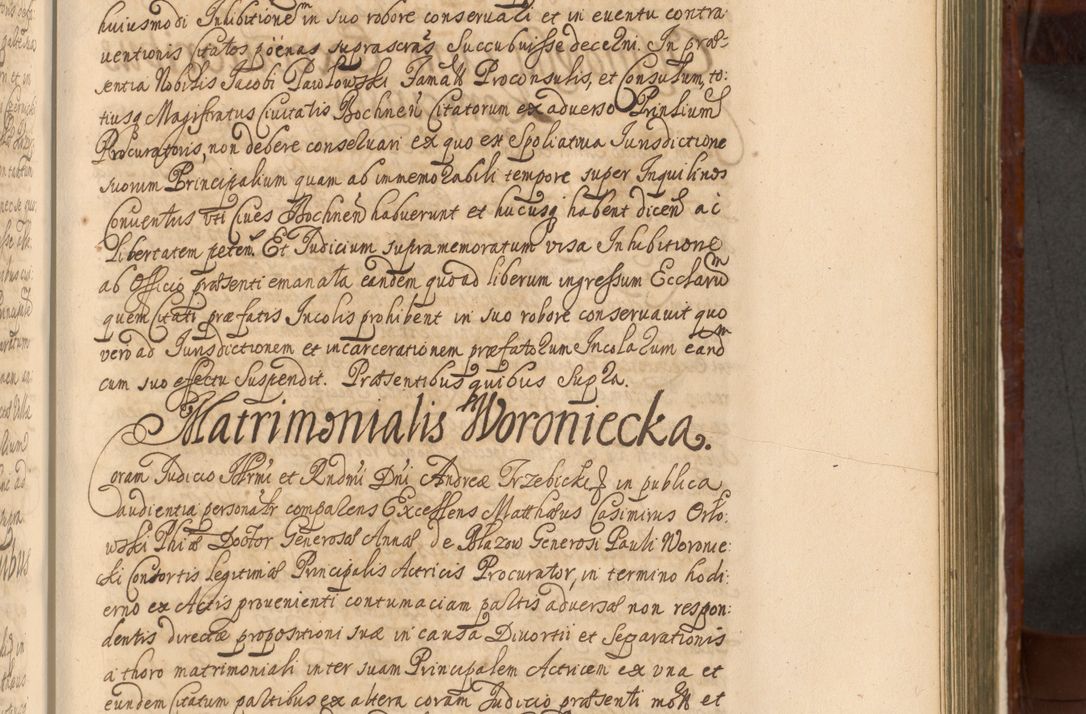 huiusmodi Inhibitionem in suo robore conservali et in eventu contra
ventionis Citatos pöenas suprascras Succubuisse decerni. In præs-
sentia Nobilis Jacobi Pawłowski Famati Proconsulis, et Consulum, to:
tiusq Magistratus Civitatis Bochnen Citatorum ex adverso Prinlium
Procuratoris, non debere conservari ex quo est Spoliativa Iurisdictione
suorum Principalium quam ab immemorabili tempore super Inquilinos
Conventus uti Cives Bochnen habuerunt et hucusq habent dicen ac
Libertatem peten. Et Iudicium supramemoratum visa Inhibitione
ab Officio præsenti emanata eandem quoad liberum ingressum Ecclarum
quem Citati præfatis Incolis prohibent in suo robore conservavit quo
vero ad Iurisdictionem et incarcerationem præfatorum Incolarum eand
cum suo effectu Suspendit. Præsentibus quibus Supra.
Matrimonialis Woroniecka.
Coram Iudicio Illrmi et Rndmi Dni Andreæ Trzebicki in publica
audientia personalr comparens Excellens Matthæus Casimirus Orło:
wski Phiæ Doctor Generosæ Annæ de Błazow Generosi Pauli Woronie:
cki Consortis Legitimæ Principalis Actricis Procurator, in termino hodi:
erno ex Actis provenienti contumaciam partis adversæ non respon:
dentis directæ propositioni suæ in causa Divortii et Separationis
a thoro matrimoniali inter suam Principalem Actricem ex una et
eundem Citatum partibus ex altera coram Iudicio præsenti mott et